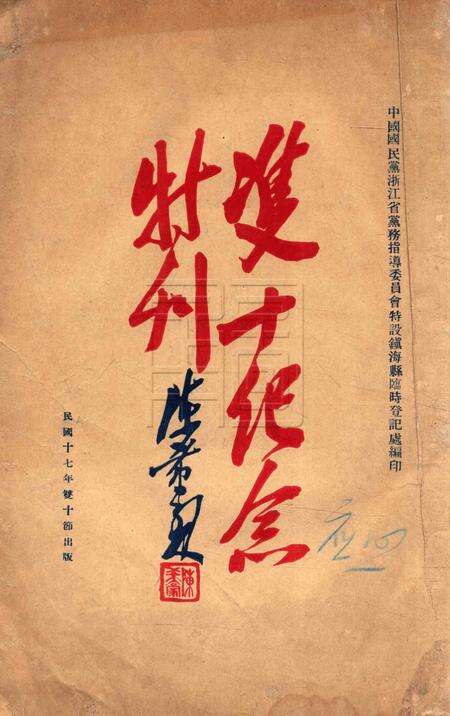 中國國民黨浙江省黨務指導委員會特設鎮海縣臨時登記處編印
雙十紀念
特刊
陳希豪
民國十七年雙十節出版